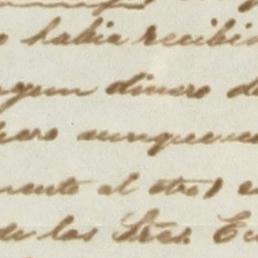 o habia recibi
ngun dinero d
pero aunque
mente al otro) e
de los Sres. Eu